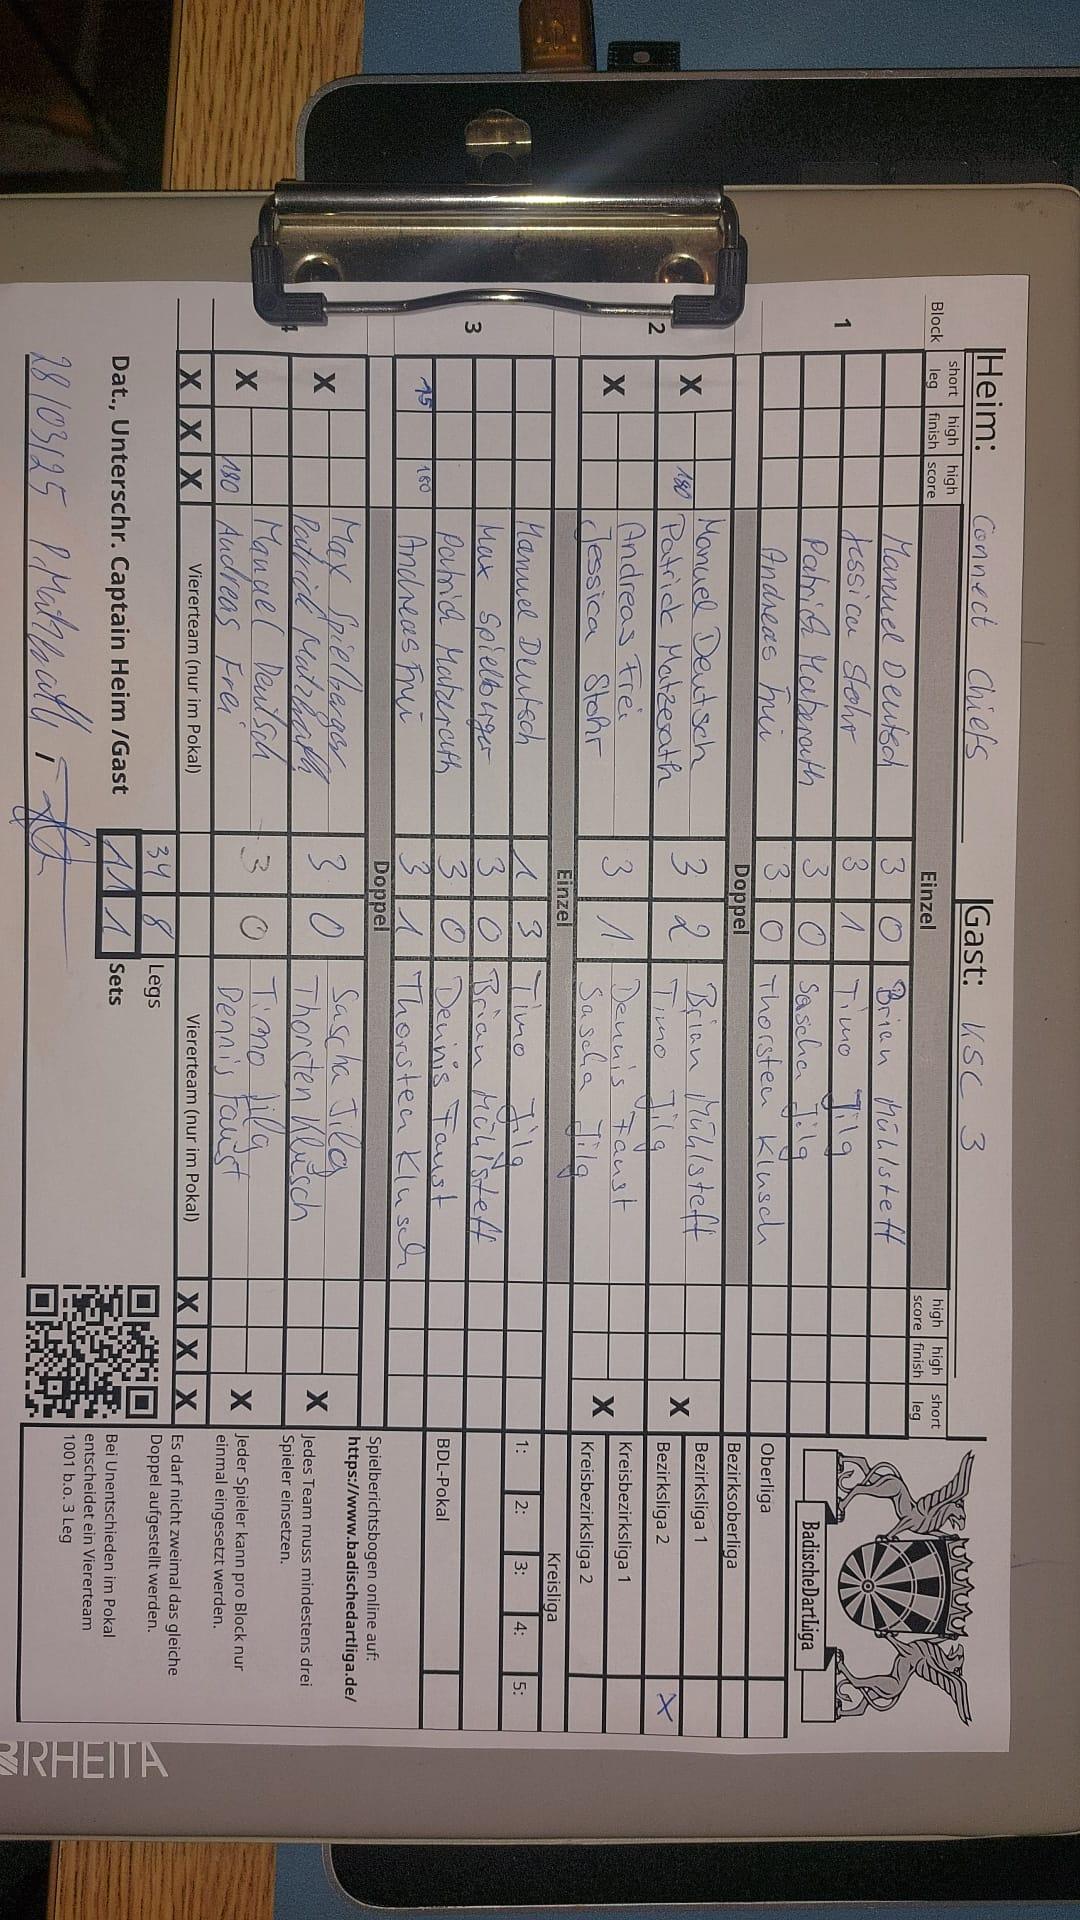 Heim: Connect Chiefs Gast: KSC 3
Block short leg high finish high score Einzel high score high finish short leg
1 Manuel Deutsch 3 0 Brian Mühlsteff
Jessica Stohr 3 1 Timo Jilg
Patrick Matzerath 3 0 Sascha Jilg
Andreas Frei 3 0 Thorsten Klusch
Doppel
2 X Manuel Deutsch 3 2 Brian Mühlsteff X
180 Patrick Matzerath Timo Jilg
X Andreas Frei 3 1 Dennis Faust X
Jessica Stohr Sascha Jilg
Einzel
3 Manuel Deutsch 1 3 Timo Jilg
Max Spielberger 3 0 Brian Mühlsteff
Patrick Matzerath 3 0 Dennis Faust
15 180 Andreas Frei 3 1 Thorsten Klusch
Doppel
4 X Max Spielberger 3 0 Sascha Jilg X
Patrick Matzerath Thorsten Klusch
X Manuel Deutsch 3 0 Timo Jilg X
180 Andreas Frei Dennis Faust
X X X Viererteam (nur im Pokal) Viererteam (nur im Pokal) X X X
34 8 Legs
Dat., Unterschr. Captain Heim /Gast 11 1 Sets
28/03/25
BadischeDartLiga
Oberliga
Bezirksoberliga
Bezirksliga 1
Bezirksliga 2 X
Kreisbezirksliga 1
Kreisbezirksliga 2
Kreisliga
1: 2: 3: 4: 5:
BDL-Pokal
Spielberichtsbogen online auf:
https://www.badischedartliga.de/
Jedes Team muss mindestens drei
Spieler einsetzen.
Jeder Spieler kann pro Block nur
einmal eingesetzt werden.
Es darf nicht zweimal das gleiche
Doppel aufgestellt werden.
Bei Unentschieden im Pokal
entscheidet ein Viererteam
1001 b.o. 3 Leg
RHEITA